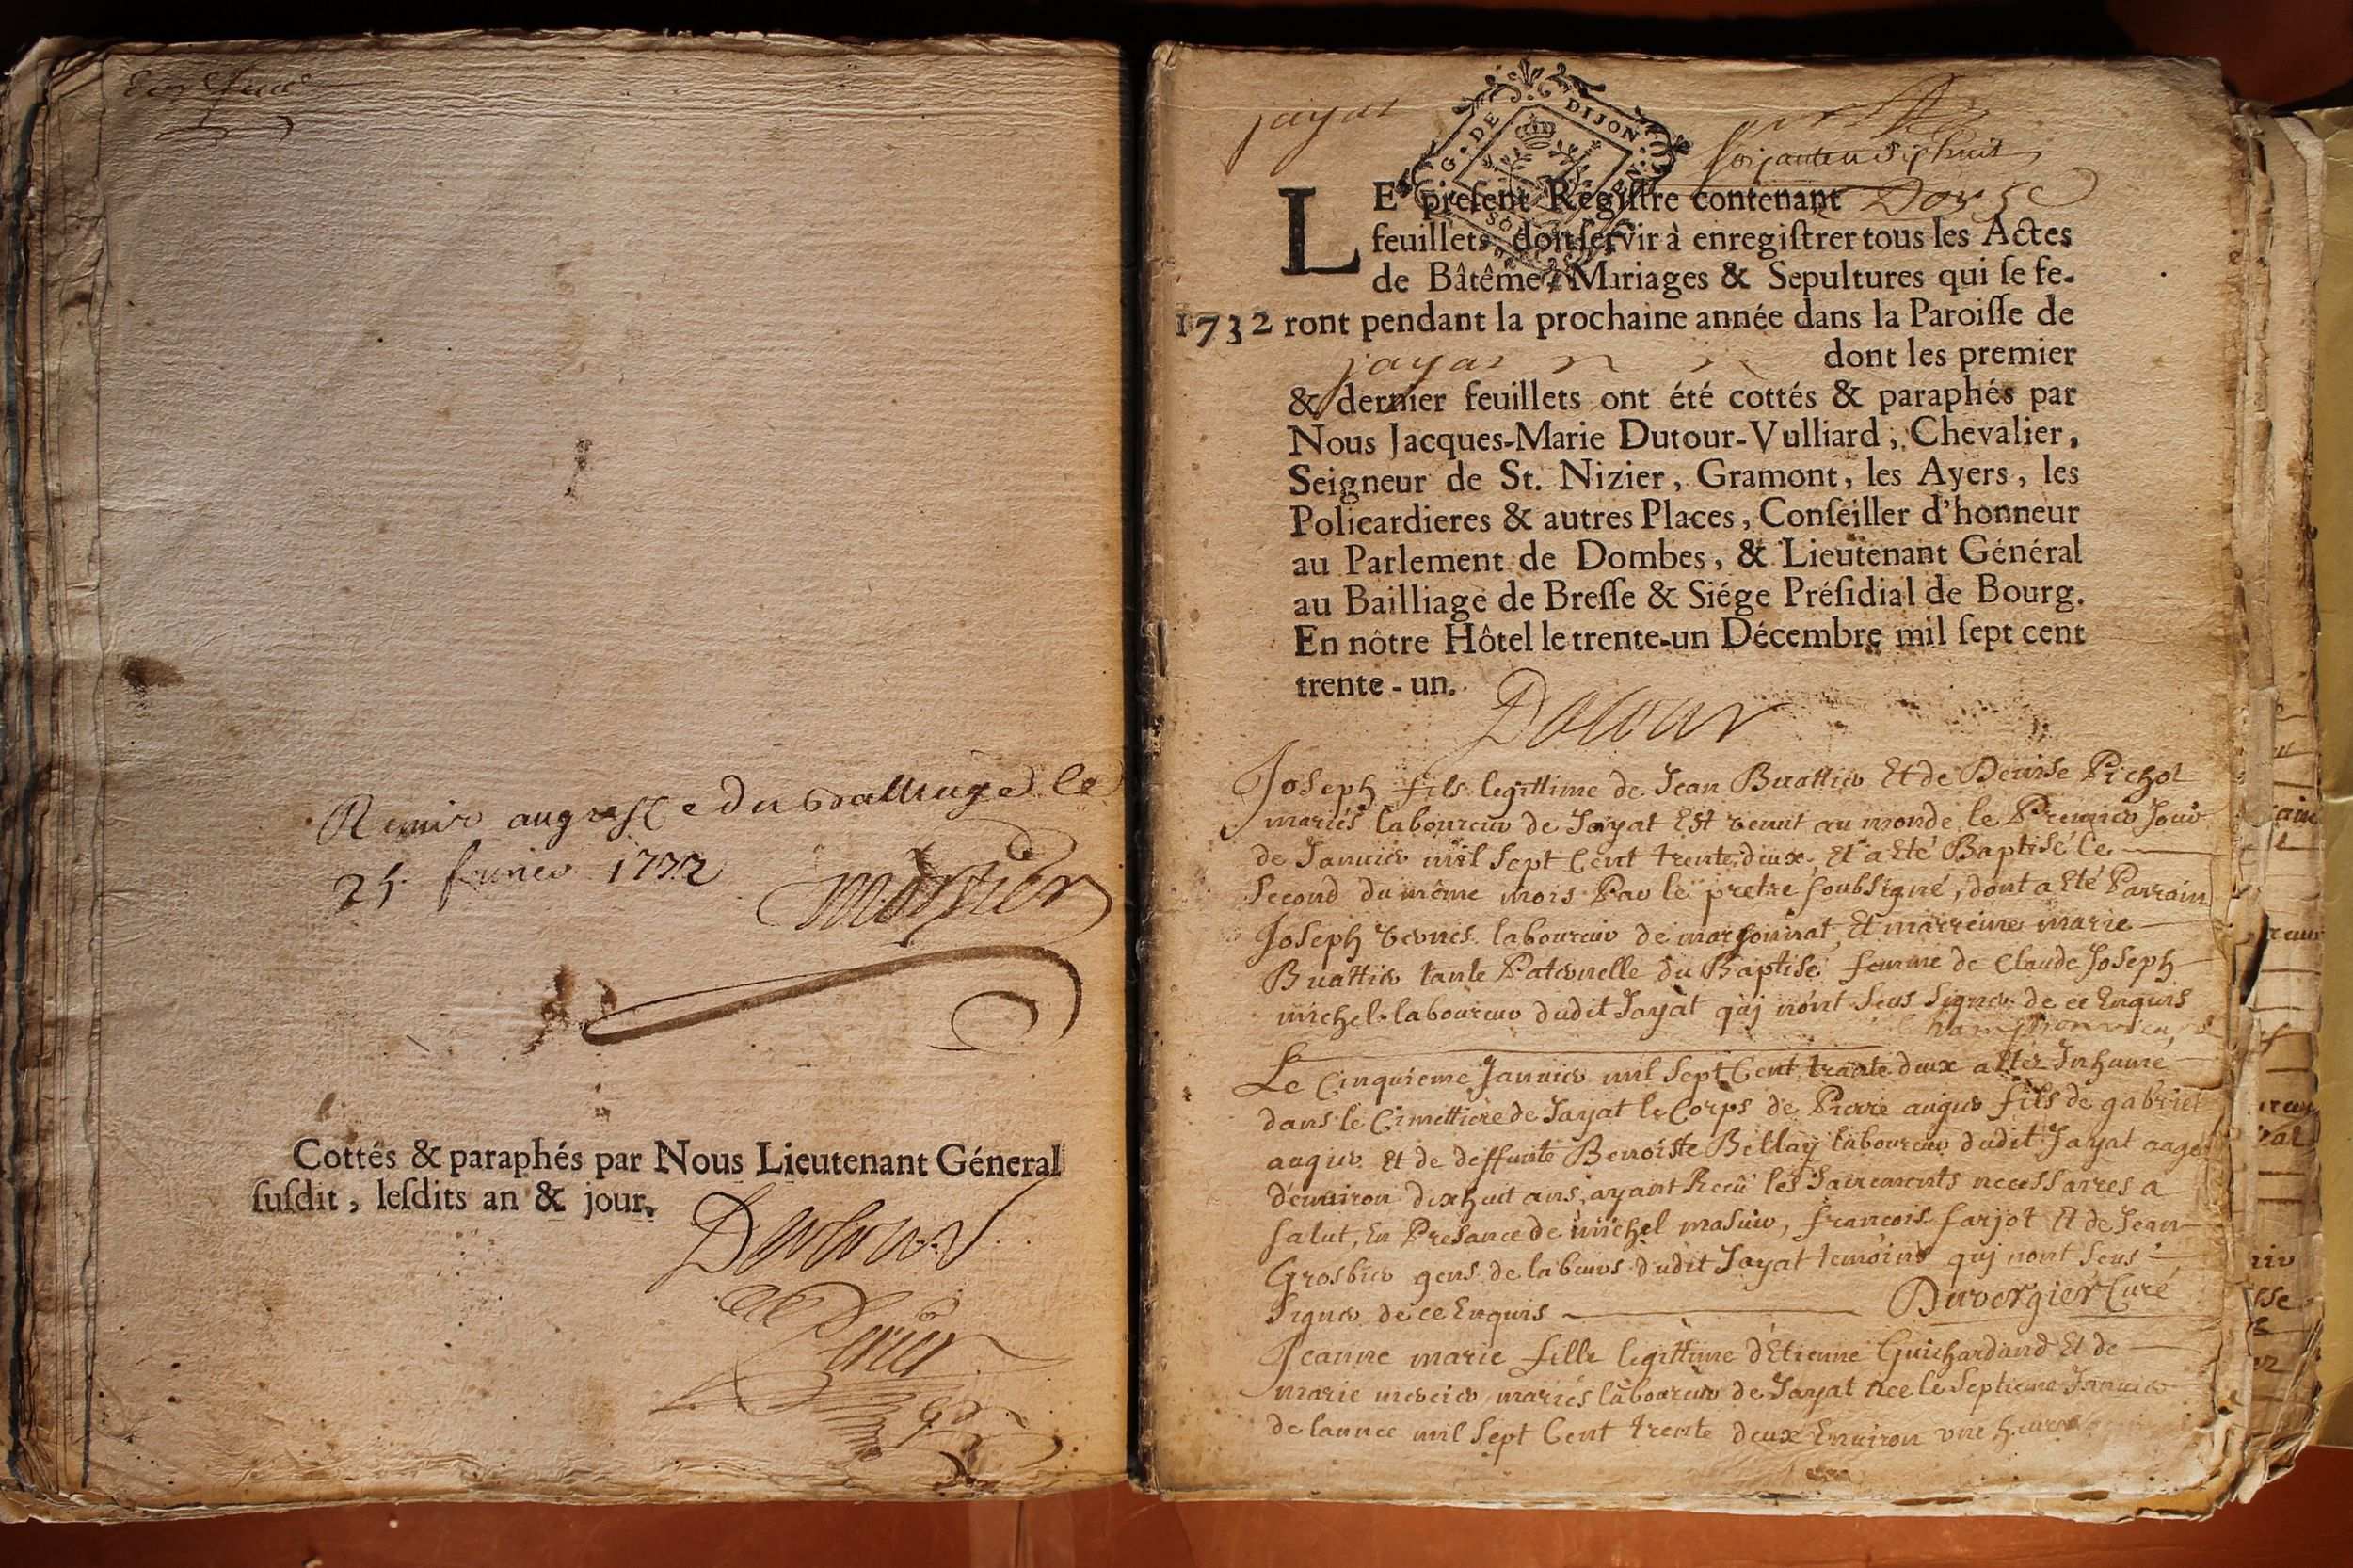 Remis au greffe du Bailliage le
25 fevrier 1732
Cottés & paraphés par Nous Lieutenant Géneral
ſuſdit, leſdits an & jour.
Dutour
jayat
G. DE DIJON
LE preſent Regiſtre contenant Douze
feuillets, doit ſervir à enregiſtrer tous les Actes
de Bâtême, Mariages & Sepultures qui ſe fe-
1732 ront pendant la prochaine année dans la Paroiſſe de
jayat dont les premier
& dernier feuillets ont été cottés & paraphés par
Nous Jacques-Marie Dutour-Vulliard, Chevalier,
Seigneur de St. Nizier, Gramont, les Ayers, les
Policardieres & autres Places, Conſeiller d'honneur
au Parlement de Dombes, & Lieutenant Général
au Bailliage de Breſſe & Siége Préſidial de Bourg.
En nôtre Hôtel le trente-un Décembre mil ſept cent
trente-un.
Dutour
Joseph fils legittime de Jean Buattier Et de Denise Pichot
mariés laboureur de Jayat Est venut au monde le Premier Jour
de Janvier mil Sept Cent trente deux. Et a Eté Baptisé le
Second du même mois Par le pretre soubsigné, dont a Eté Parrain
Joseph vernes laboureur de marsonnat Et marreine marie
Buattier tante Paternelle du Baptisé femme de Claude Joseph
michel laboureur dudit Jayat quj n'ont Seus Signer de ce Enquis
Le Cinquieme Janvier mil Sept Cent trante deux a Etez Inhumé
dans le Cimettiere de Jayat le Corps de Pierre augier fils de gabriel
augier Et de deffunte Benoiste Billay laboureur dudit Jayat aagé
d'environ dixhuit ans, ayant Recü les Sairements necessaires a
Salut, En Presance de michel masuir, francois farjot Et de Jean
Grosbier gens de labeurs dudit Jayat temoins quj nont Seus
Signer de ce Enquis Duvergier Curé
Jeanne marie fille legittime d'Etienne Guichardand Et de
marie mercier mariés laboureur de Jayat nee le Septieme Janvier
de lannee mil Sept Cent trente deux Environ une heure